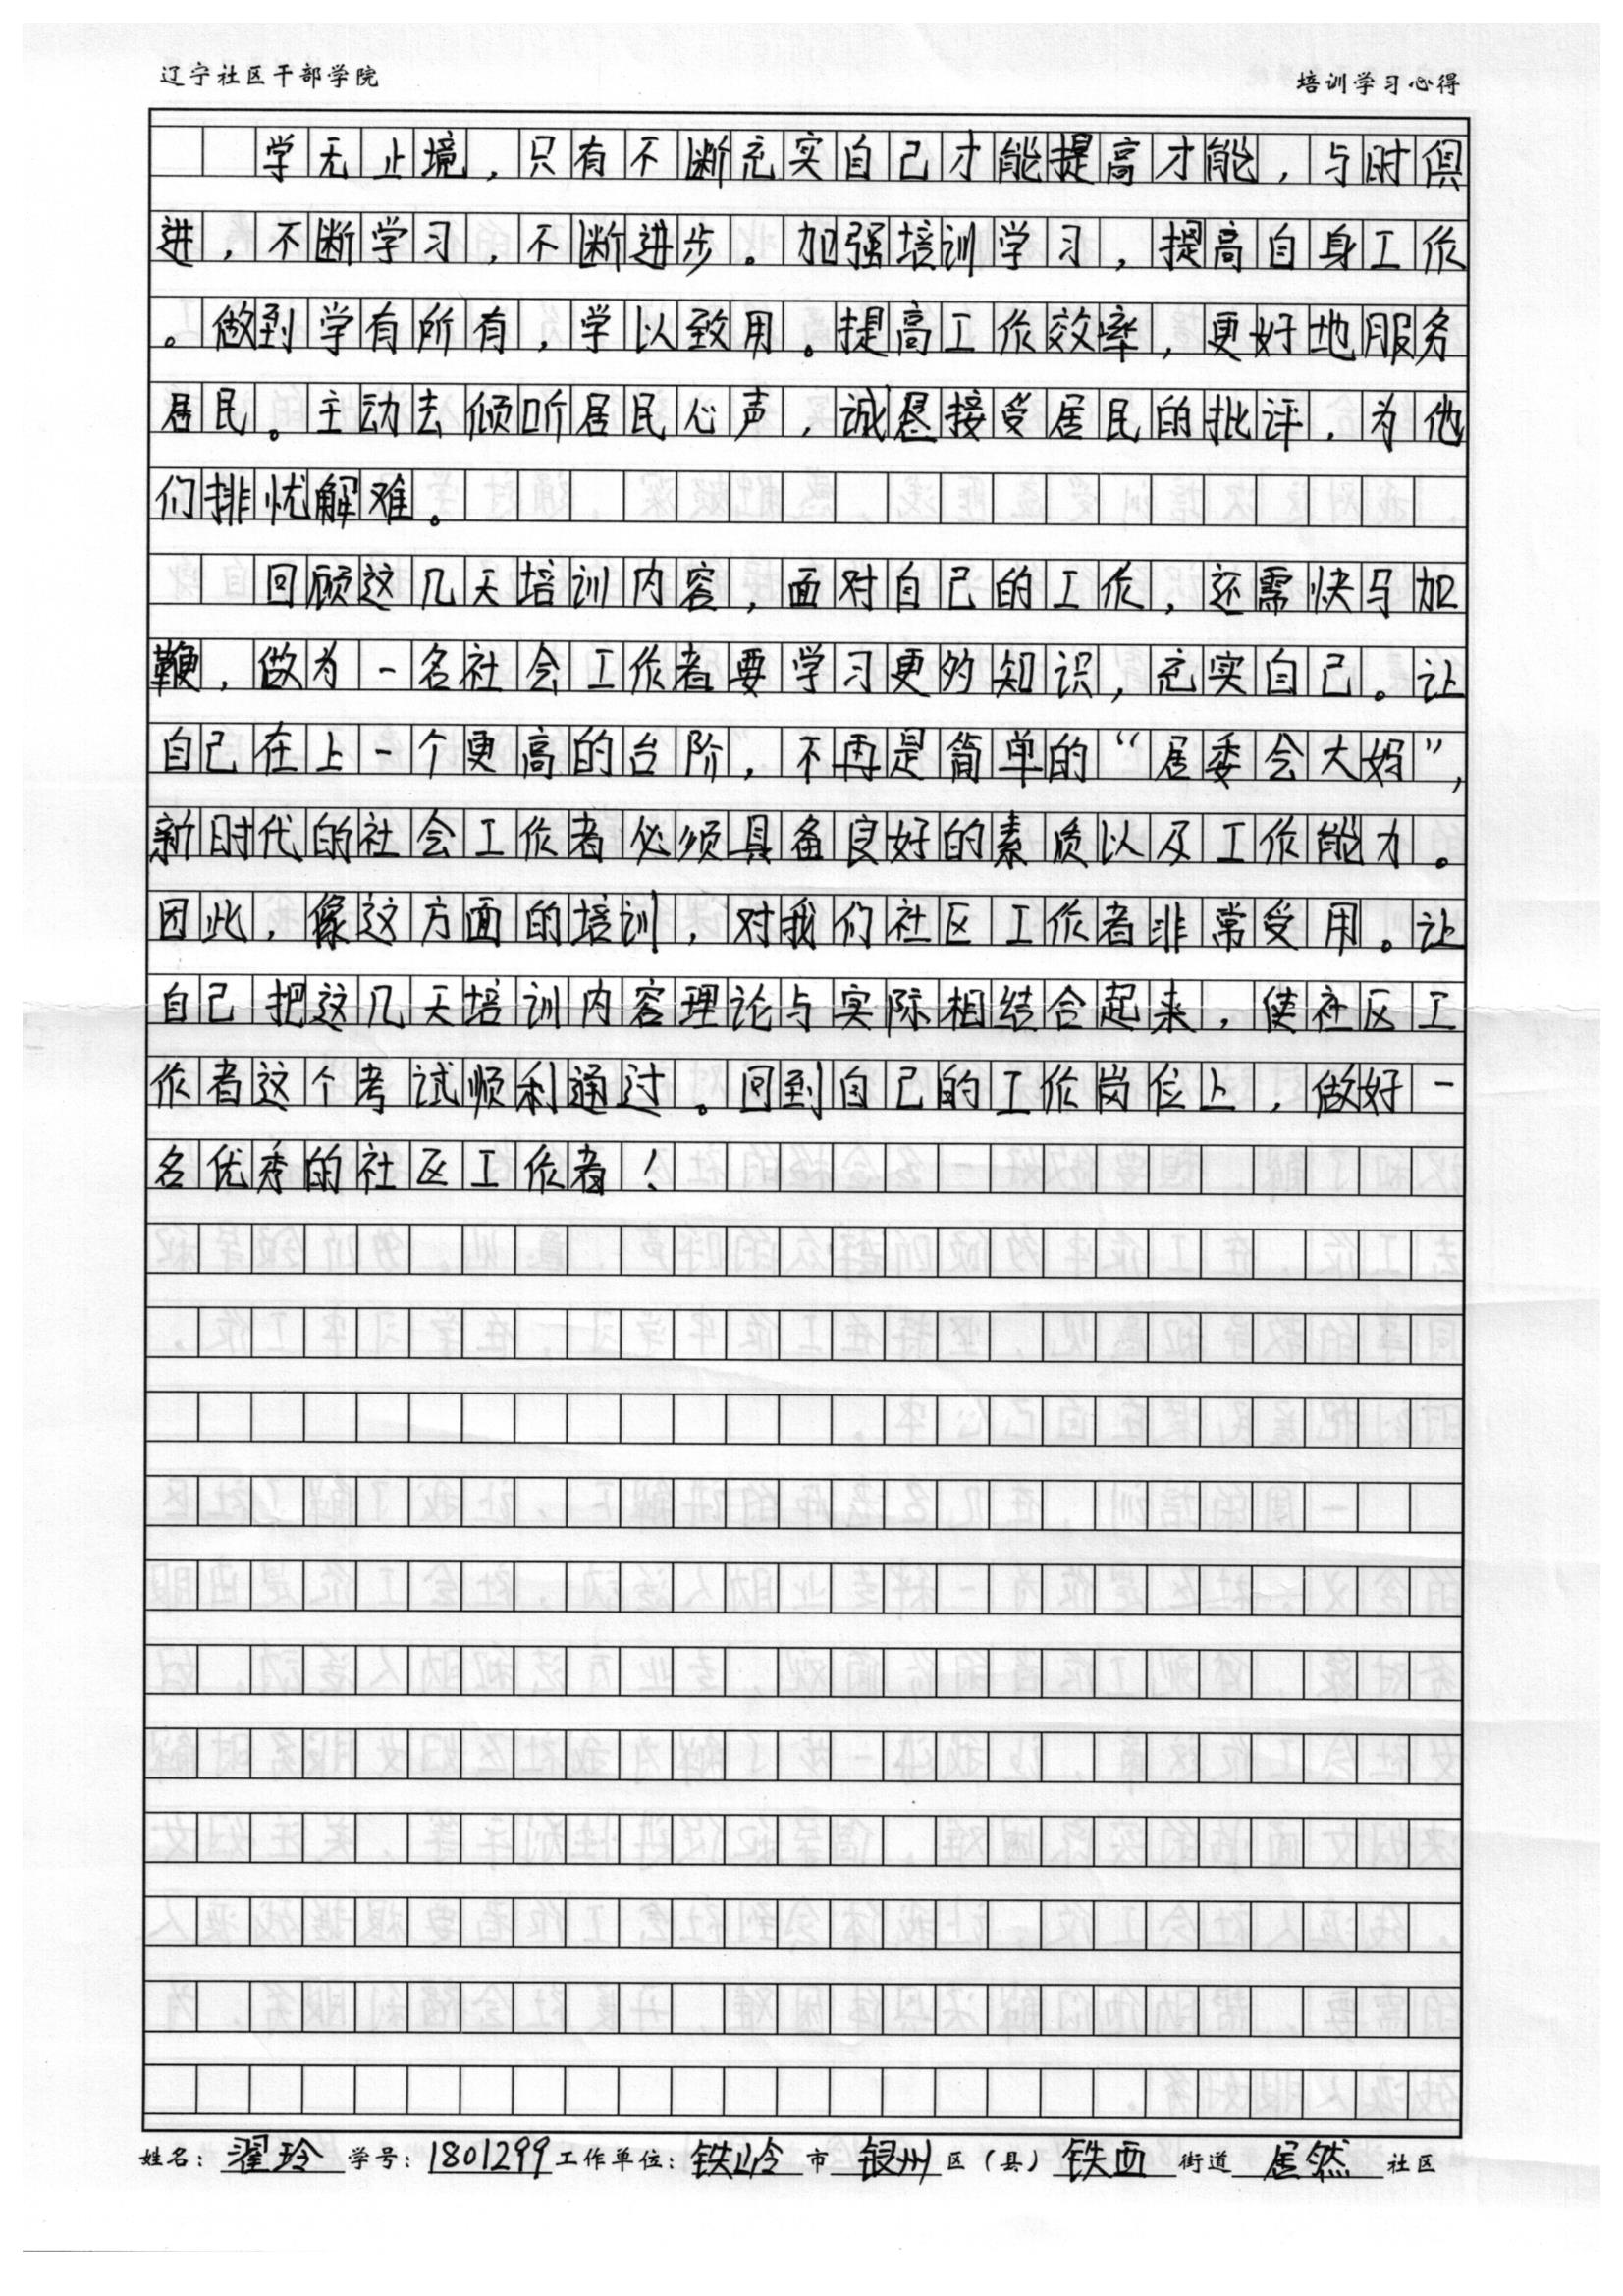 辽宁社区干部学院 培训学习心得
学无止境，只有不断充实自己才能提高才能，与时俱
进，不断学习，不断进步。加强培训学习，提高自身工作
。做到学有所有，学以致用。提高工作效率，更好地服务
居民。主动去倾听居民心声，诚恳接受居民的批评，为他
们排忧解难。
回顾这几天培训内容，面对自己的工作，还需快马加
鞭，做为一名社会工作者要学习更多的知识，充实自己。让
自己在上一个更高的台阶，不再是简单的“居委会大妈”，
新时代的社会工作者必须具备良好的素质以及工作能力。
因此，像这方面的培训，对我们社区工作者非常受用。让
自己把这几天培训内容理论与实际相结合起来，使社区工
作者这个考试顺利通过。回到自己的工作岗位上，做好一
名优秀的社区工作者！
姓名：翟玲 学号：1801299 工作单位：铁岭市 银州区（县）铁西街道 居然社区